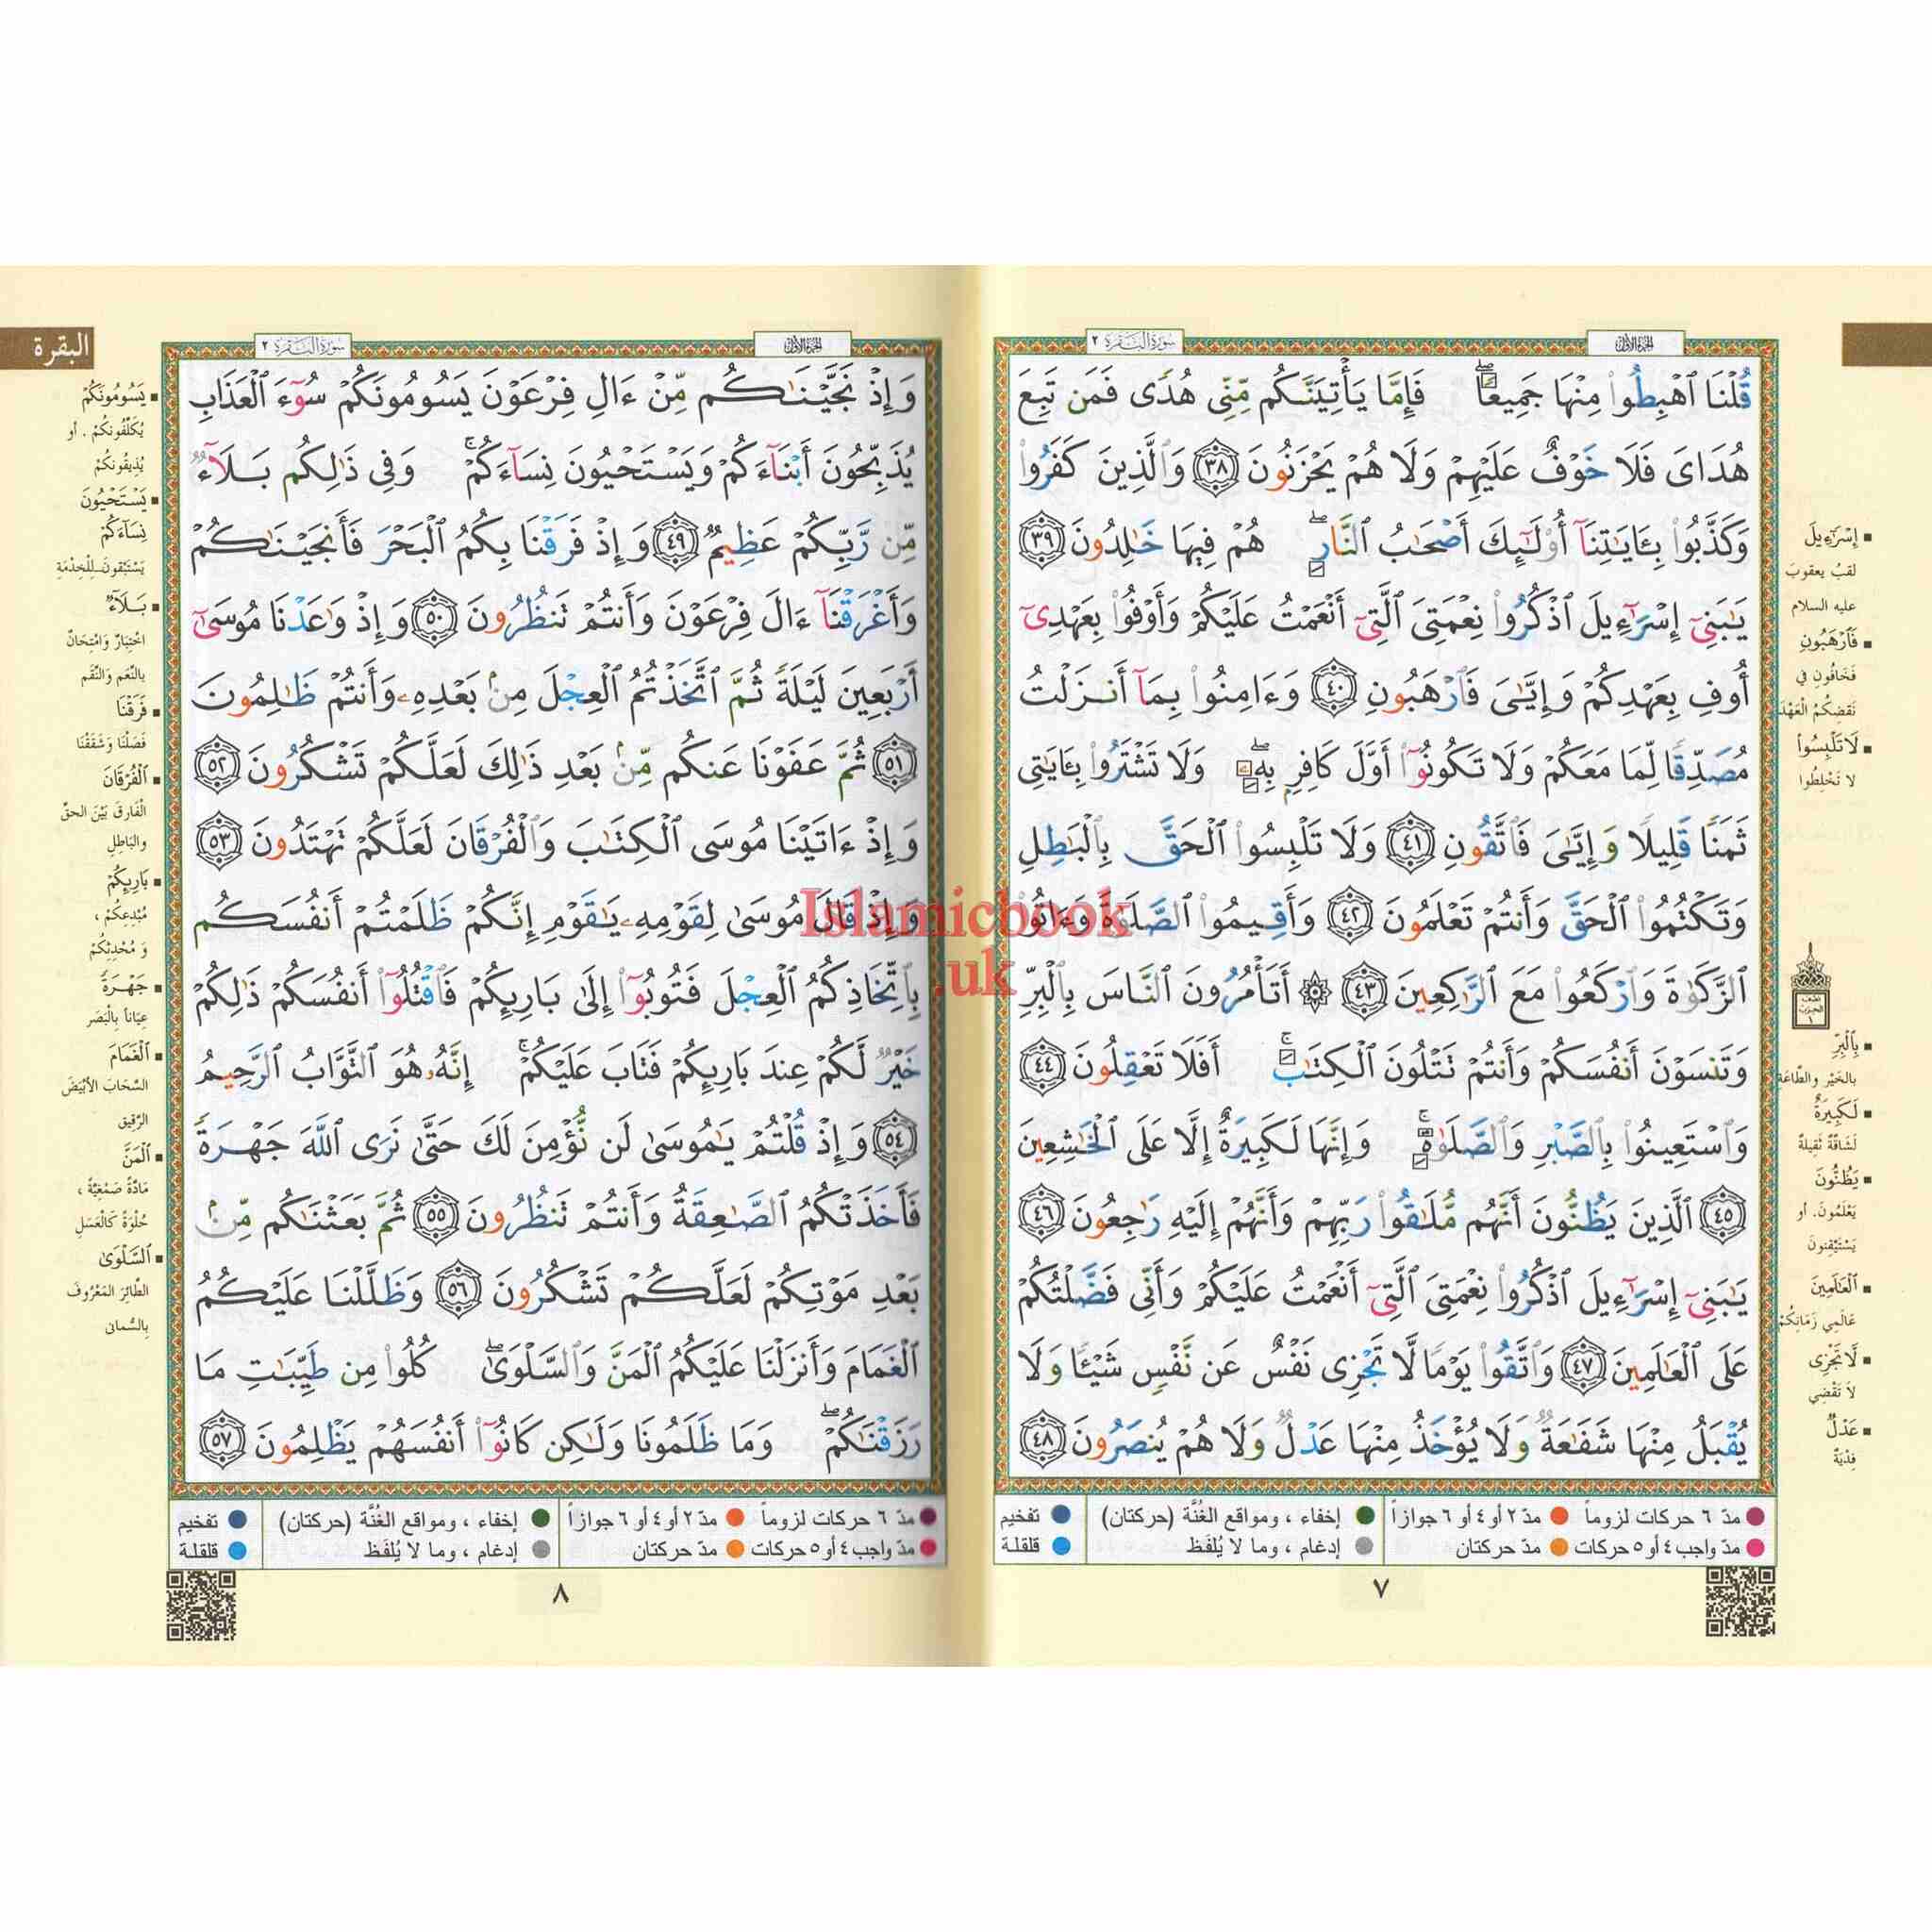 الجزء الأول
سورة البقرة ٢
قُلْنَا ٱهْبِطُوا۟ مِنْهَا جَمِيعًاۖ فَإِمَّا يَأْتِيَنَّكُم مِّنِّى هُدًى فَمَن تَبِعَ
هُدَاىَ فَلَا خَوْفٌ عَلَيْهِمْ وَلَا هُمْ يَحْزَنُونَ ٣٨ وَٱلَّذِينَ كَفَرُوا۟
وَكَذَّبُوا۟ بِـَٔايَـٰتِنَآ أُو۟لَـٰٓئِكَ أَصْحَـٰبُ ٱلنَّارِۖ هُمْ فِيهَا خَـٰلِدُونَ ٣٩
يَـٰبَنِىٓ إِسْرَٰٓءِيلَ ٱذْكُرُوا۟ نِعْمَتِىَ ٱلَّتِىٓ أَنْعَمْتُ عَلَيْكُمْ وَأَوْفُوا۟ بِعَهْدِىٓ
أُوفِ بِعَهْدِكُمْ وَإِيَّـٰىَ فَٱرْهَبُونِ ٤٠ وَءَامِنُوا۟ بِمَآ أَنزَلْتُ
مُصَدِّقًا لِّمَا مَعَكُمْ وَلَا تَكُونُوٓا۟ أَوَّلَ كَافِرٍۭ بِهِۦۖ وَلَا تَشْتَرُوا۟ بِـَٔايَـٰتِى
ثَمَنًا قَلِيلًا وَإِيَّـٰىَ فَٱتَّقُونِ ٤١ وَلَا تَلْبِسُوا۟ ٱلْحَقَّ بِٱلْبَـٰطِلِ
وَتَكْتُمُوا۟ ٱلْحَقَّ وَأَنتُمْ تَعْلَمُونَ ٤٢ وَأَقِيمُوا۟ ٱلصَّلَوٰةَ وَءَاتُوا۟
ٱلزَّكَوٰةَ وَٱرْكَعُوا۟ مَعَ ٱلرَّٰكِعِينَ ٤٣ ۞ أَتَأْمُرُونَ ٱلنَّاسَ بِٱلْبِرِّ
وَتَنسَوْنَ أَنفُسَكُمْ وَأَنتُمْ تَتْلُونَ ٱلْكِتَـٰبَۚ أَفَلَا تَعْقِلُونَ ٤٤
وَٱسْتَعِينُوا۟ بِٱلصَّبْرِ وَٱلصَّلَوٰةِۚ وَإِنَّهَا لَكَبِيرَةٌ إِلَّا عَلَى ٱلْخَـٰشِعِينَ
٤٥ ٱلَّذِينَ يَظُنُّونَ أَنَّهُم مُّلَـٰقُوا۟ رَبِّهِمْ وَأَنَّهُمْ إِلَيْهِ رَٰجِعُونَ ٤٦
يَـٰبَنِىٓ إِسْرَٰٓءِيلَ ٱذْكُرُوا۟ نِعْمَتِىَ ٱلَّتِىٓ أَنْعَمْتُ عَلَيْكُمْ وَأَنِّى فَضَّلْتُكُمْ
عَلَى ٱلْعَـٰلَمِينَ ٤٧ وَٱتَّقُوا۟ يَوْمًا لَّا تَجْزِى نَفْسٌ عَن نَّفْسٍ شَيْـًٔا وَلَا
يُقْبَلُ مِنْهَا شَفَـٰعَةٌ وَلَا يُؤْخَذُ مِنْهَا عَدْلٌ وَلَا هُمْ يُنصَرُونَ ٤٨
إِسْرَٰٓءِيلَ
لقبُ يعقوبَ
عليه السلام
فَٱرْهَبُونِ
فَخَافُونِ في
نَقضِكُمُ الْعَهْدَ
لَا تَلْبِسُوا۟
لا تَخْلِطُوا
نصف الحزب ١
بِٱلْبِرِّ
بالخَيْرِ والطَّاعَة
لَكَبِيرَةٌ
لَشَاقَّةٌ ثَقِيلَةٌ
يَظُنُّونَ
يَعْلَمُونَ. أو
يَسْتَيْقِنونَ
ٱلْعَـٰلَمِينَ
عَالَمِي زَمَانِكُمْ
لَّا تَجْزِى
لا تَقْضِي
عَدْلٌ
فِدْيَةٌ
مدّ ٦ حركات لزوماً مدّ ٢ أو ٤ أو ٦ جوازاً إخفاء ، ومواقع الغُنَّة (حركتان) تفخيم
مدّ واجب ٤ أو ٥ حركات مدّ حركتان إدغام ، وما لا يُلفَظ قلقلة
٧
الجزء الأول
سورة البقرة ٢
البقرة
وَإِذْ نَجَّيْنَـٰكُم مِّنْ ءَالِ فِرْعَوْنَ يَسُومُونَكُمْ سُوٓءَ ٱلْعَذَابِ
يُذَبِّحُونَ أَبْنَآءَكُمْ وَيَسْتَحْيُونَ نِسَآءَكُمْۚ وَفِى ذَٰلِكُم بَلَآءٌ
مِّن رَّبِّكُمْ عَظِيمٌ ٤٩ وَإِذْ فَرَقْنَا بِكُمُ ٱلْبَحْرَ فَأَنجَيْنَـٰكُمْ
وَأَغْرَقْنَآ ءَالَ فِرْعَوْنَ وَأَنتُمْ تَنظُرُونَ ٥٠ وَإِذْ وَٰعَدْنَا مُوسَىٰٓ
أَرْبَعِينَ لَيْلَةً ثُمَّ ٱتَّخَذْتُمُ ٱلْعِجْلَ مِنۢ بَعْدِهِۦ وَأَنتُمْ ظَـٰلِمُونَ
٥١ ثُمَّ عَفَوْنَا عَنكُم مِّنۢ بَعْدِ ذَٰلِكَ لَعَلَّكُمْ تَشْكُرُونَ ٥٢
وَإِذْ ءَاتَيْنَا مُوسَى ٱلْكِتَـٰبَ وَٱلْفُرْقَانَ لَعَلَّكُمْ تَهْتَدُونَ ٥٣
وَإِذْ قَالَ مُوسَىٰ لِقَوْمِهِۦ يَـٰقَوْمِ إِنَّكُمْ ظَلَمْتُمْ أَنفُسَكُم
بِٱتِّخَاذِكُمُ ٱلْعِجْلَ فَتُوبُوٓا۟ إِلَىٰ بَارِئِكُمْ فَٱقْتُلُوٓا۟ أَنفُسَكُمْ ذَٰلِكُمْ
خَيْرٌ لَّكُمْ عِندَ بَارِئِكُمْ فَتَابَ عَلَيْكُمْۚ إِنَّهُۥ هُوَ ٱلتَّوَّابُ ٱلرَّحِيمُ
٥٤ وَإِذْ قُلْتُمْ يَـٰمُوسَىٰ لَن نُّؤْمِنَ لَكَ حَتَّىٰ نَرَى ٱللَّهَ جَهْرَةً
فَأَخَذَتْكُمُ ٱلصَّـٰعِقَةُ وَأَنتُمْ تَنظُرُونَ ٥٥ ثُمَّ بَعَثْنَـٰكُم مِّنۢ
بَعْدِ مَوْتِكُمْ لَعَلَّكُمْ تَشْكُرُونَ ٥٦ وَظَلَّلْنَا عَلَيْكُمُ
ٱلْغَمَامَ وَأَنزَلْنَا عَلَيْكُمُ ٱلْمَنَّ وَٱلسَّلْوَىٰۖ كُلُوا۟ مِن طَيِّبَـٰتِ مَا
رَزَقْنَـٰكُمْۖ وَمَا ظَلَمُونَا وَلَـٰكِن كَانُوٓا۟ أَنفُسَهُمْ يَظْلِمُونَ ٥٧
يَسُومُونَكُمْ
يُكَلِّفُونَكُمْ. أو
يُذِيقُونَكُمْ
يَسْتَحْيُونَ
نِسَآءَكُمْ
يَسْتَبْقونَ لِلْخِدْمَةِ
بَلَآءٌ
اخْتِبَارٌ وَامْتِحَانٌ
بالنِّعَمِ وَالنِّقَمِ
فَرَقْنَا
فَصَلْنَا وَشَقَقْنَا
ٱلْفُرْقَانَ
الْفَارِقَ بَيْنَ الحقِّ
والبَاطِلِ
بَارِئِكُمْ
مُبْدِعِكُمْ ،
وَ مُحْدِثِكُمْ
جَهْرَةً
عِيَاناً بِالْبَصَر
ٱلْغَمَامَ
السَّحَابَ الأبْيَضَ
الرَّقِيق
ٱلْمَنَّ
مَادَّةً صَمْغِيَّةً ،
حُلْوَةً كَالْعَسَلِ
ٱلسَّلْوَىٰ
الطَّائِرَ المَعْرُوفَ
بِالسُّمانى
مدّ ٦ حركات لزوماً مدّ ٢ أو ٤ أو ٦ جوازاً إخفاء ، ومواقع الغُنَّة (حركتان) تفخيم
مدّ واجب ٤ أو ٥ حركات مدّ حركتان إدغام ، وما لا يُلفَظ قلقلة
٨
Islamicbook
.uk